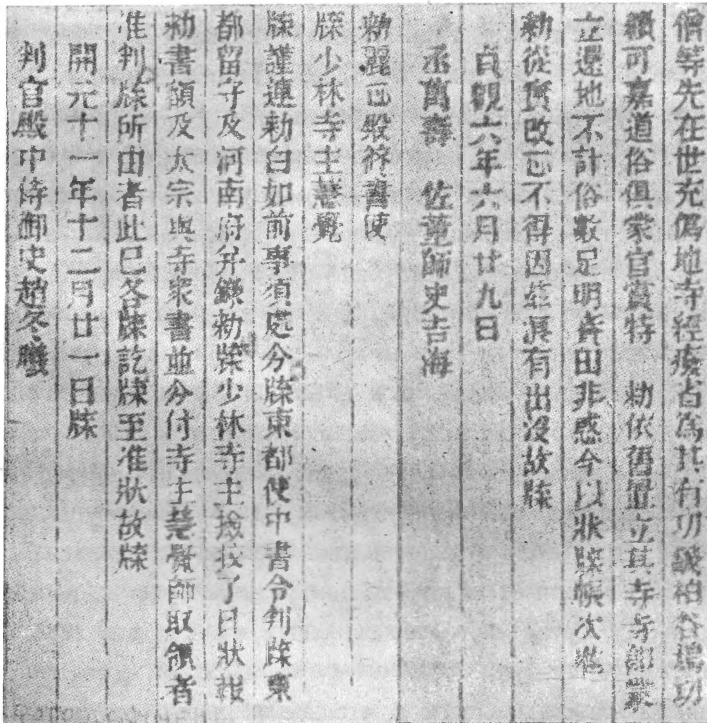 僧等先在世充偽地寺經廢省為其有功㦯柏谷塢功
績可嘉道俗俱蒙官賞特 勅依舊置立其寺寺郎蒙
立還地不計俗數足明賚田非惑今以狀牒帳次准
勅從實改正不得因茲浪有出沒故牒
貞觀六年六月廿九日
丞萬壽 佐董師史吉海
勅麗正殿修書使
牒少林寺主慧覺
牒謹連勅白如前事須處分牒東都使中書令判牒東
都留守及河南府并錄勅牒少林寺主撿挍了日狀報
勅書額及太宗與寺眾書並分付寺主慧覺師取領者
准判牒所由者此已各牒訖牒至准狀故牒
開元十一年十二月廿一日牒
判官殿中侍御史趙冬曦